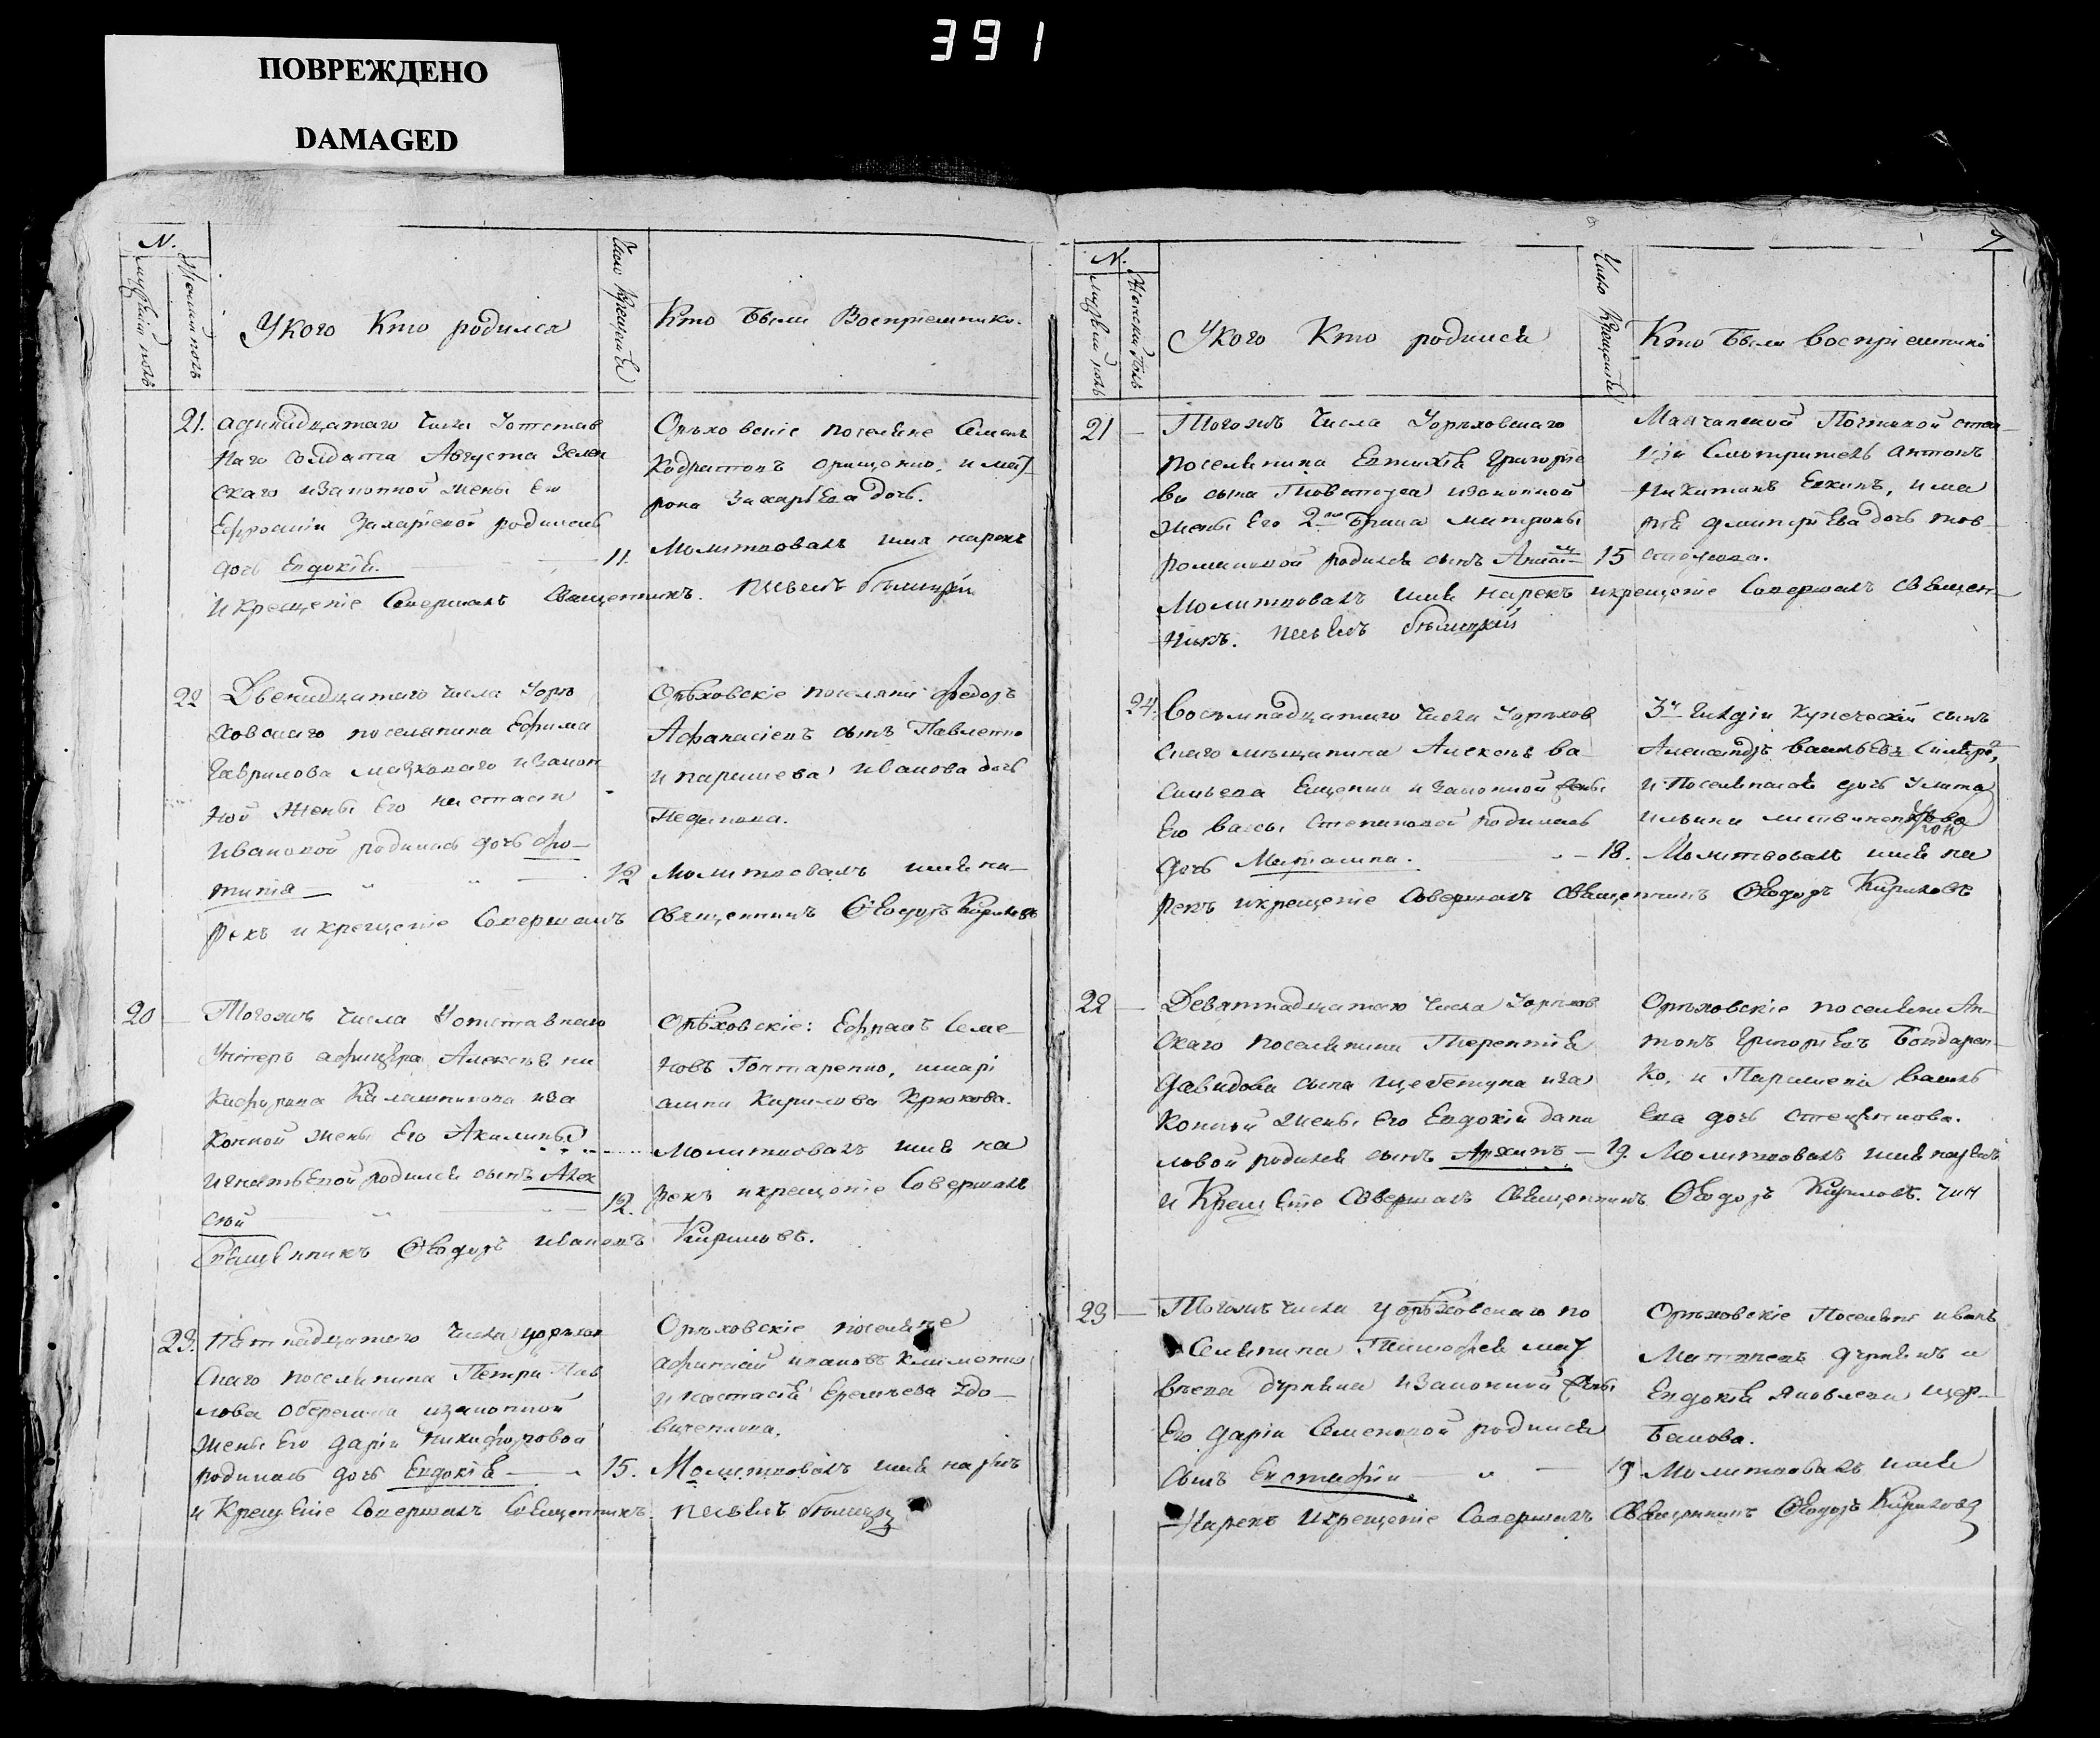 391
ПОВРЕЖДЕНО
DAMAGED
N.
мужескій полъ
Женскій полъ
Укого Кто родился
Число Крещенія
Кто были Воспріемники.
21. адинадцатаго Числа Уотстав
наго солдата Августа
скаго изаконной жены Его
Ефросиніи Захаріевой родилась
дочь Евдокія. 11.
Оръховскіе поселяне Семенъ
Кодратовъ и мат
рона Захаріева дочь.
Молитвовалъ имя нарекъ
и крещеніе Совершалъ Священникъ.
22 Двенадцатаго числа Уоръ
ховскаго поселянина Ефима
Гаврилова изакон
ной жены Его настасіи
Ивановой родилась дочь фо-
тинія 12
Оръховскіе поселяни федоръ
Афанасіевъ сынъ Павленко
и Иванова дочь
Молитвовалъ имя на-
рекъ и крещеніе Совершалъ священникъ Ѳеодоръ Кириловъ
20 Тогожъ числа Уотставнаго
Унтеръ афицера Алексѣя ни
кифорова Калашникова иза
конной жены Его Акилины
Игнатьевой родился сынъ Алек
сѣй 12.
Оръховскіе: Ефремъ Семе-
новъ Гонтаренко, имарі
анна Кирилова Крюкова.
Молитвовалъ имя на
рекъ икрещеніе Совершалъ
Священникъ Ѳеодоръ Ивановъ Кириловъ.
23. Пятнадцатаго Числа уоръхов
скаго поселянина Петра Пав
лова изаконной
жены Его даріи никифоровой
родилась дочь Евдокія 15.
Оръховскіе поселяне
афанасій ивановъ
и настасія Еремѣева Вдо-
виченкова.
Молитвовалъ имя нарекъ
и Крещеніе Совершалъ Священникъ.
7
N.
мужескій полъ
Женскій Полъ
Укого Кто родился
Число Крещенія
Кто Были Воспріемники
21 Тогожъ Числа Уоръховскаго
поселянина Евтихія Григорье
ва сына Товстонога изаконной
жены Его 2го брака матроны
романовой родился сынъ 15
Почтовой стан-
ціи Смотритель антонъ
Никитинъ, има
рія дмитріева дочь тов-
стонога.
Молитвовалъ имя нарекъ икрещеніе Совершалъ священ-
никъ.
24. Восемнадцатаго Числа Уоръхов
скаго мѣщанина Алексѣя ва
сильева Ещенка изаконной жены
Его Васы Степановой родилась
дочь Маріанна. 18.
3й гилдіи купеческій сынъ
Александръ васильевъ
и Поселянская дочь Улита
ильина
Молитвовалъ имя на
рекъ икрещеніе совершалъ священникъ Ѳеодоръ Кириловъ
22 Девятнадцатаго числа Уоръхов
скаго поселянина Терентія
давидова сына Щебетуна иза
конной жены Его Евдокіи дани
ловой родился сынъ Архипъ 19.
Оръховскіе поселяне Ан-
тонъ Григорьевъ Бондарен-
ко, и Параскева василь
ева дочь
Молитвовалъ имя нарекъ
и Крещеніе Совершалъ священникъ Ѳеодоръ Кириловъ.
23 Тогожъ числа уоръховскаго по
селянина Тимофея мат
вѣева изаконной жены
Его даріи Семеновой родился
сынъ Евстафій 19
Оръховскіе Поселяне иванъ
и
Евдокія Яковлева Щер-
бакова.
Молитвовалъ имя
Нарекъ икрещеніе Совершалъ Священникъ Ѳеодоръ Кириловъ